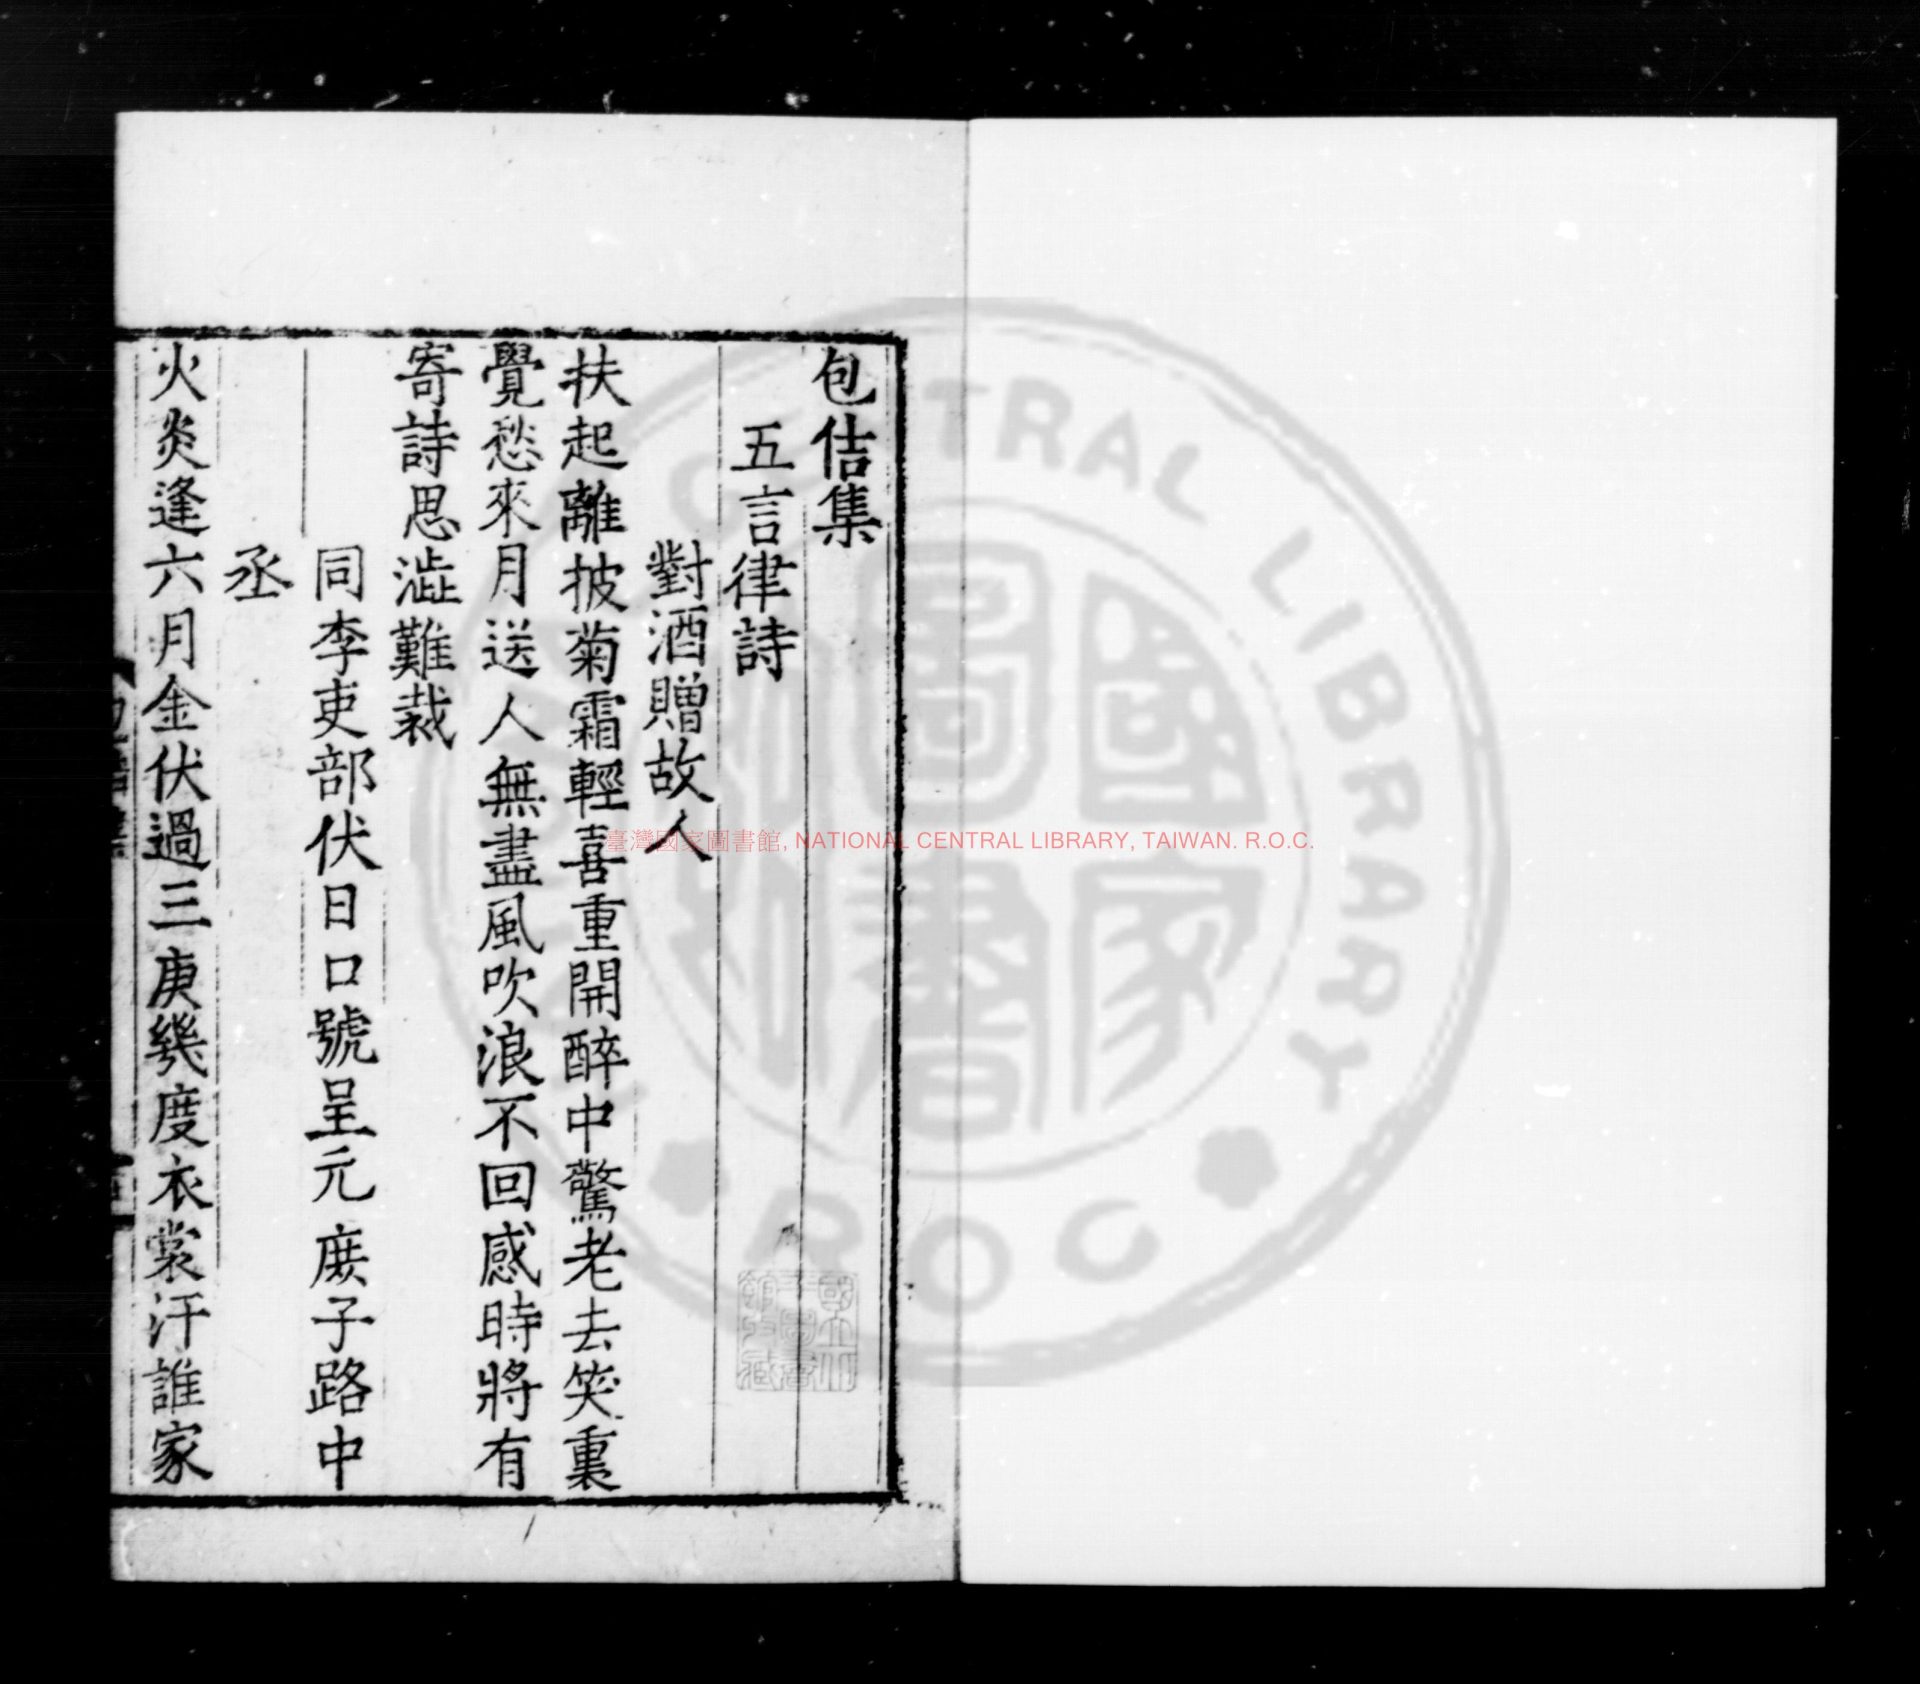 包佶集
五言律詩
對酒贈故人
扶起離披菊霜輕喜重開醉中驚老去笑裏
覺愁來月送人無盡風吹浪不回感時將有
寄詩思澁難裁
同李吏部伏日口號呈元庻子路中
丞
火炎逢六月金伏過三庚幾度衣裳汗誰家
臺灣國家圖書館, NATIONAL CENTRAL LIBRARY, TAIWAN. R.O.C.
CENTRAL LIBRARY
國家圖書
ROC